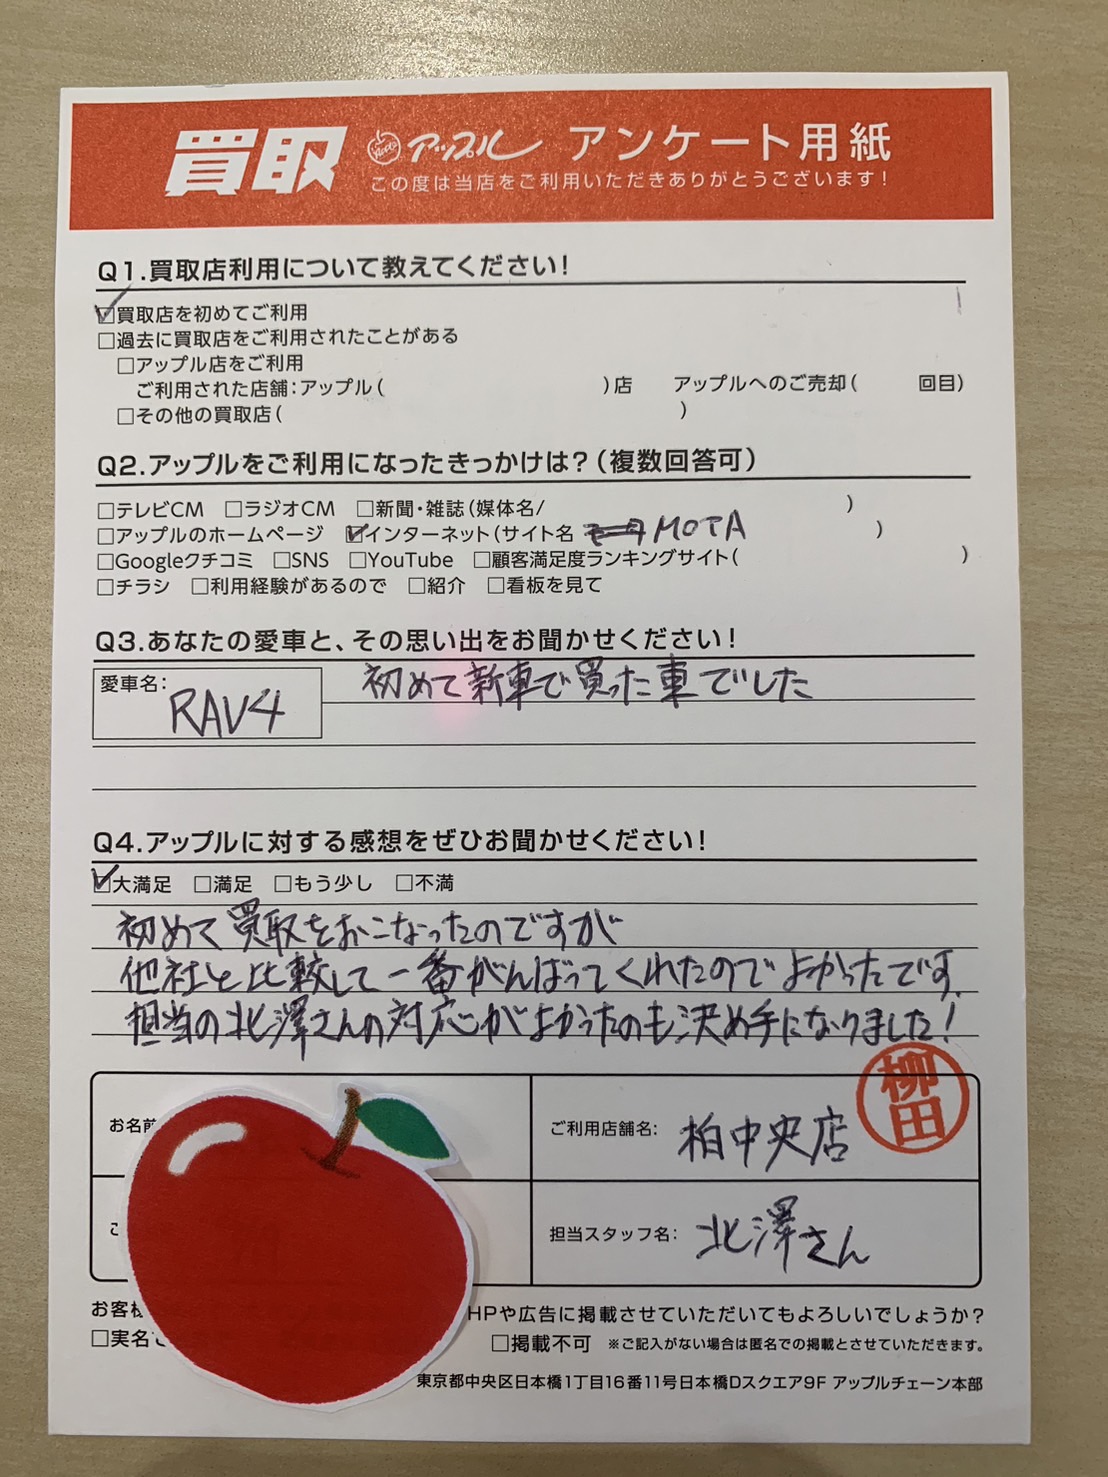 買取 アップル アンケート用紙
この度は当店をご利用いただきありがとうございます!
Q1.買取店利用について教えてください!
☑買取店を初めてご利用
□過去に買取店をご利用されたことがある
□アップル店をご利用
ご利用された店舗:アップル( )店 アップルへのご売却( 回目)
□その他の買取店( )
Q2.アップルをご利用になったきっかけは?(複数回答可)
□テレビCM □ラジオCM □新聞・雑誌(媒体名/ )
□アップルのホームページ ☑インターネット(サイト名 MOTA )
□Googleクチコミ □SNS □YouTube □顧客満足度ランキングサイト( )
□チラシ □利用経験があるので □紹介 □看板を見て
Q3.あなたの愛車と、その思い出をお聞かせください!
愛車名: RAV4 初めて新車で買った車でした
Q4.アップルに対する感想をぜひお聞かせください!
☑大満足 □満足 □もう少し □不満
初めて買取をおこなったのですが
他社と比較して一番がんばってくれたのでよかったです.
担当の北澤さんの対応がよかったのも決め手になりました!
お名前 ご利用店舗名: 柏中央店 柳田
ご 担当スタッフ名: 北澤さん
お客様 HPや広告に掲載させていただいてもよろしいでしょうか?
□実名で □掲載不可 ※ご記入がない場合は匿名での掲載とさせていただきます。
東京都中央区日本橋1丁目16番11号日本橋Dスクエア9F アップルチェーン本部